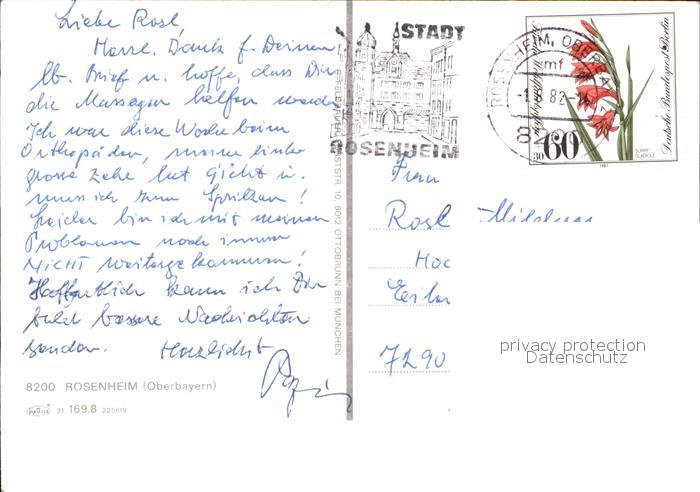 Liebe Rosl,
Herzl. Dank f. Deinen
lb. Brief u. hoffe, dass Dir
die Massagen helfen werden.
Ich war diese Woche beim
Orthopäden, meine linke
grosse Zehe hat Gicht u.
muss ich zum Spritzen!
Leider bin ich mit meinen
Problemen noch immer
NICHT weitergekommen!
Hoffentlich kann ich Dir
bald bessere Nachrichten
senden. Herzlichst
8200 ROSENHEIM (Oberbayern)
31.169.8 225619
STR. 10, 8012 OTTOBRUNN BEI MÜNCHEN
STADT
ROSENHEIM
ROSENHEIM, OBERB
mf
82
Deutsche Bundespost Berlin
60
SUMPF
GLADIOLE
1981
Frau
Rosl
Hoc
7290
privacy protection
Datenschutz